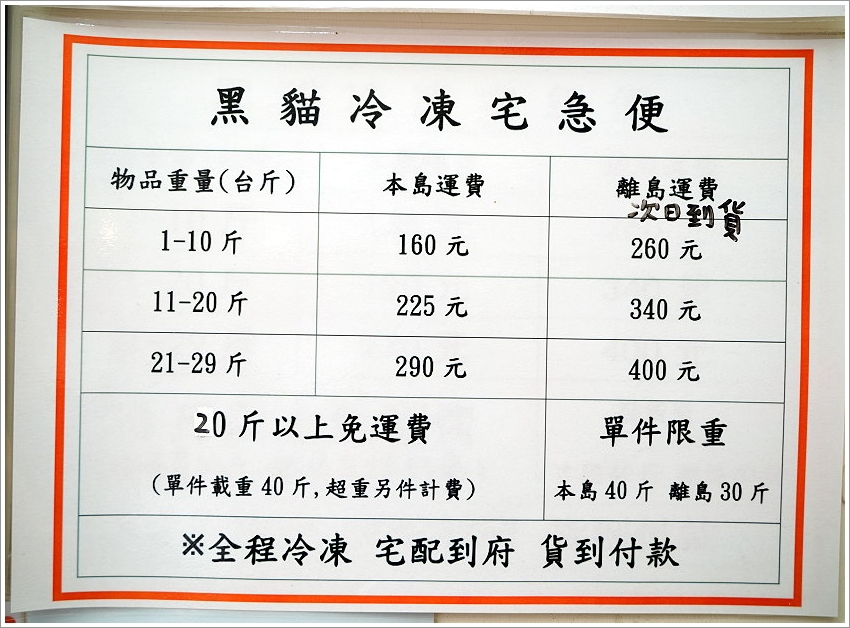 黑貓冷凍宅急便
物品重量(台斤) 本島運費 離島運費
次日到貨
1-10 斤 160 元 260 元
11-20 斤 225 元 340 元
21-29 斤 290 元 400 元
20 斤以上免運費 單件限重
(單件載重 40 斤,超重另件計費) 本島 40 斤 離島 30 斤
※全程冷凍 宅配到府 貨到付款